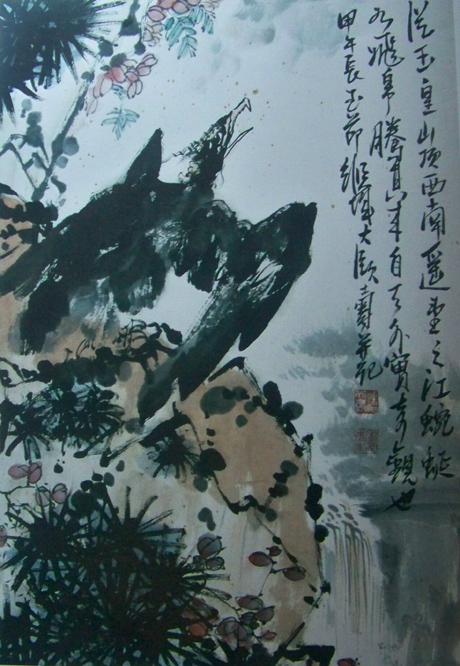 從玉皇山頂西南遙望之江蜿蜒
如飛帛騰來自天外實奇觀也
甲午長至節大頤壽并記